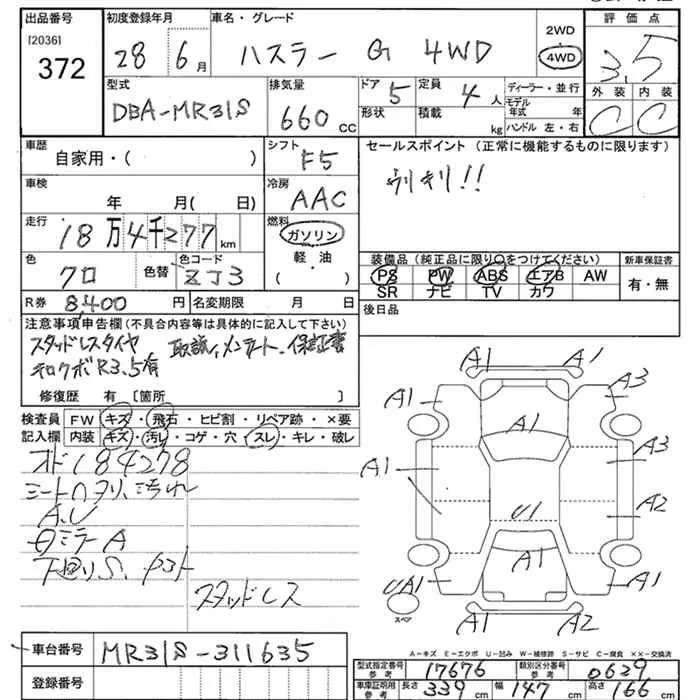 出品番号 初度登録年月 車名・グレード 評価点
[2036] 372 28 6月 ハスラー G 4WD 2WD 4WD 3.5
型式 排気量 ドア 定員 ディーラー・並行 外装 内装
DBA-MR31S 660cc 5 4人 モデル年式 年 C C
形状 積載 kg ハンドル 左・右
車歴 シフト セールスポイント(正常に機能するものに限ります)
自家用・( ) F5
車検 冷房
年 月( 日) AAC
走行 燃料
18万4千277km ガソリン
軽油
・
( )
色 色替 色コード 装備品(純正品に限り○をつけてください) 新車保証書
クロ ZJ3 PS PW ABS エアB AW 有・無
SR ナビ TV カワ
R券 8,400円 名変期限 月 日 後日品
注意事項申告欄(不具合内容等は具体的に記入して下さい)
スタッドレスタイヤ 取説、メンテノート、保証書
R3.5有
修復歴 有[箇所 ]
検査員 FW キズ・飛石・ヒビ割・リペア跡・×要
記入欄 内装 キズ・汚レ・コゲ・穴・スレ・キレ・破レ
オド184278
A.U
ミラーA
下回りS.
スタッドレス
A1 A1
A1 A1 A3
A1 A3
U1 A2
A1
UA1 A1
スペア
A1 A2
A-キズ E-エクボ U-凹み W-補修跡 S-サビ C-腐食 ××-交換済
車台番号 MR31S-311635
登録番号
型式指定番号 参考 17676 類別区分番号 参考 0629
車庫証明用 参考 長さ 339cm 幅 147cm 高さ 166cm